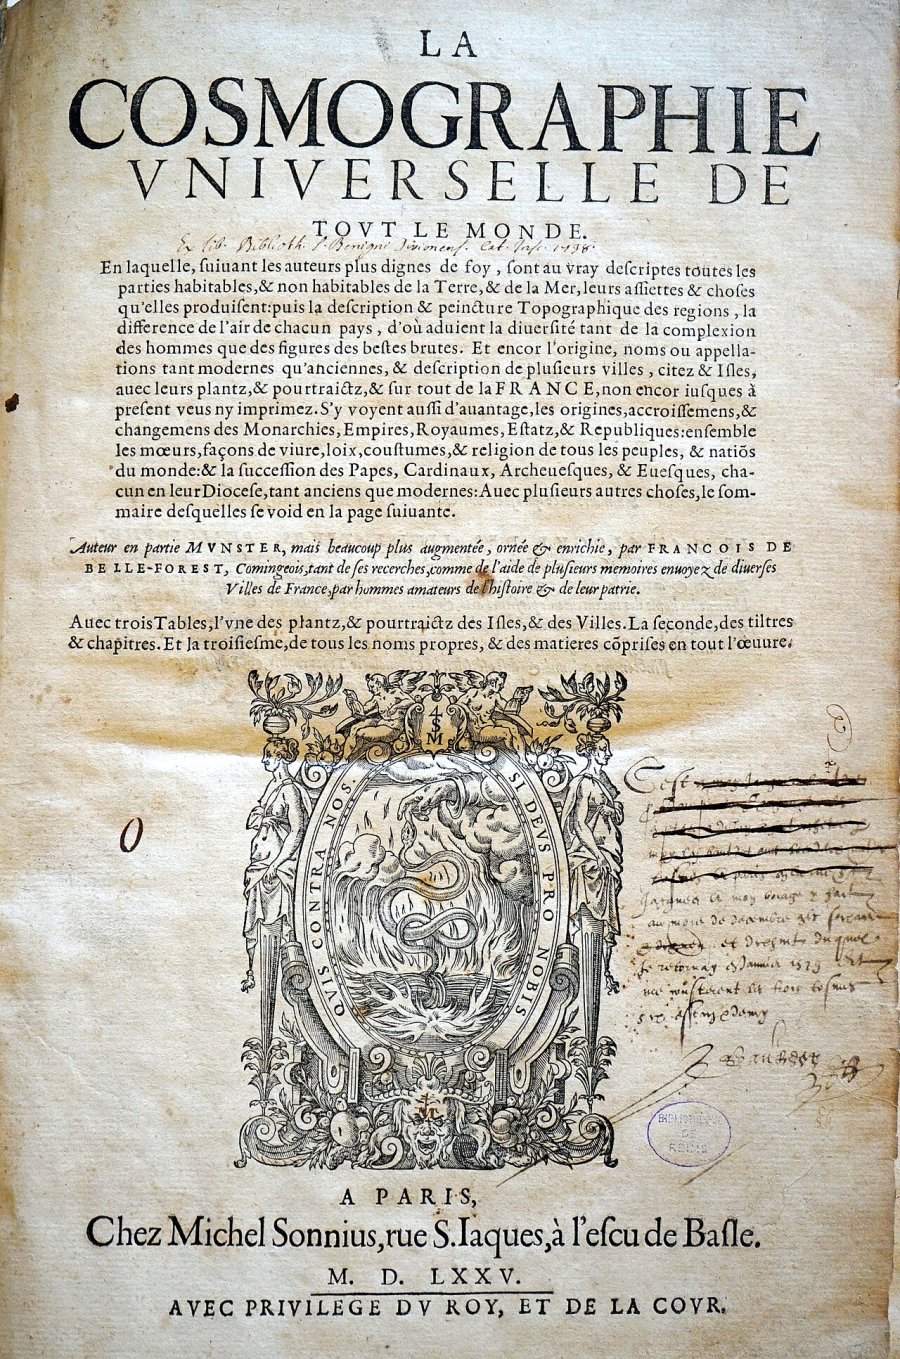 LA
COSMOGRAPHIE
VNIVERSELLE DE
TOVT LE MONDE.
Ex lib. Biblioth. S. Benigni Divionens. Cat. Insc. 1738
En laquelle, suiuant les auteurs plus dignes de foy, sont au vray descriptes toutes les
parties habitables, & non habitables de la Terre, & de la Mer, leurs assiettes & choses
qu'elles produisent: puis la description & peincture Topographique des regions, la
difference de l'air de chacun pays, d'où aduient la diuersité tant de la complexion
des hommes que des figures des bestes brutes. Et encor l'origine, noms ou appella-
tions tant modernes qu'anciennes, & description de plusieurs villes, citez & Isles,
auec leurs plantz, & pourtraictz, & sur tout de la FRANCE, non encor iusques à
present veus ny imprimez. S'y voyent aussi d'auantage, les origines, accroissemens, &
changemens des Monarchies, Empires, Royaumes, Estatz, & Republiques: ensemble
les mœurs, façons de viure, loix, coustumes, & religion de tous les peuples, & natiõs
du monde: & la succession des Papes, Cardinaux, Archeuesques, & Euesques, cha-
cun en leur Diocese, tant anciens que modernes: Auec plusieurs autres choses, le som-
maire desquelles se void en la page suiuante.
Auteur en partie MVNSTER, mais beaucoup plus augmentée, ornée & enrichie, par FRANCOIS DE
BELLE-FOREST, Comingeois, tant de ses recerches, comme de l'aide de plusieurs memoires enuoyez de diuerses
Villes de France, par hommes amateurs de l'histoire & de leur patrie.
Auec trois Tables, l'vne des plantz, & pourtraictz des Isles, & des Villes. La seconde, des tiltres
& chapitres. Et la troisiesme, de tous les noms propres, & des matieres cõprises en tout l'œuure.
4
S
M
SI DEVS PRO NOBIS
QVIS CONTRA NOS
C'est
au mois de decembre
et
BIBLIOTHEQUE
DE
A PARIS,
Chez Michel Sonnius, rue S. Iaques, à l'escu de Basle.
M. D. LXXV.
AVEC PRIVILEGE DV ROY, ET DE LA COVR.